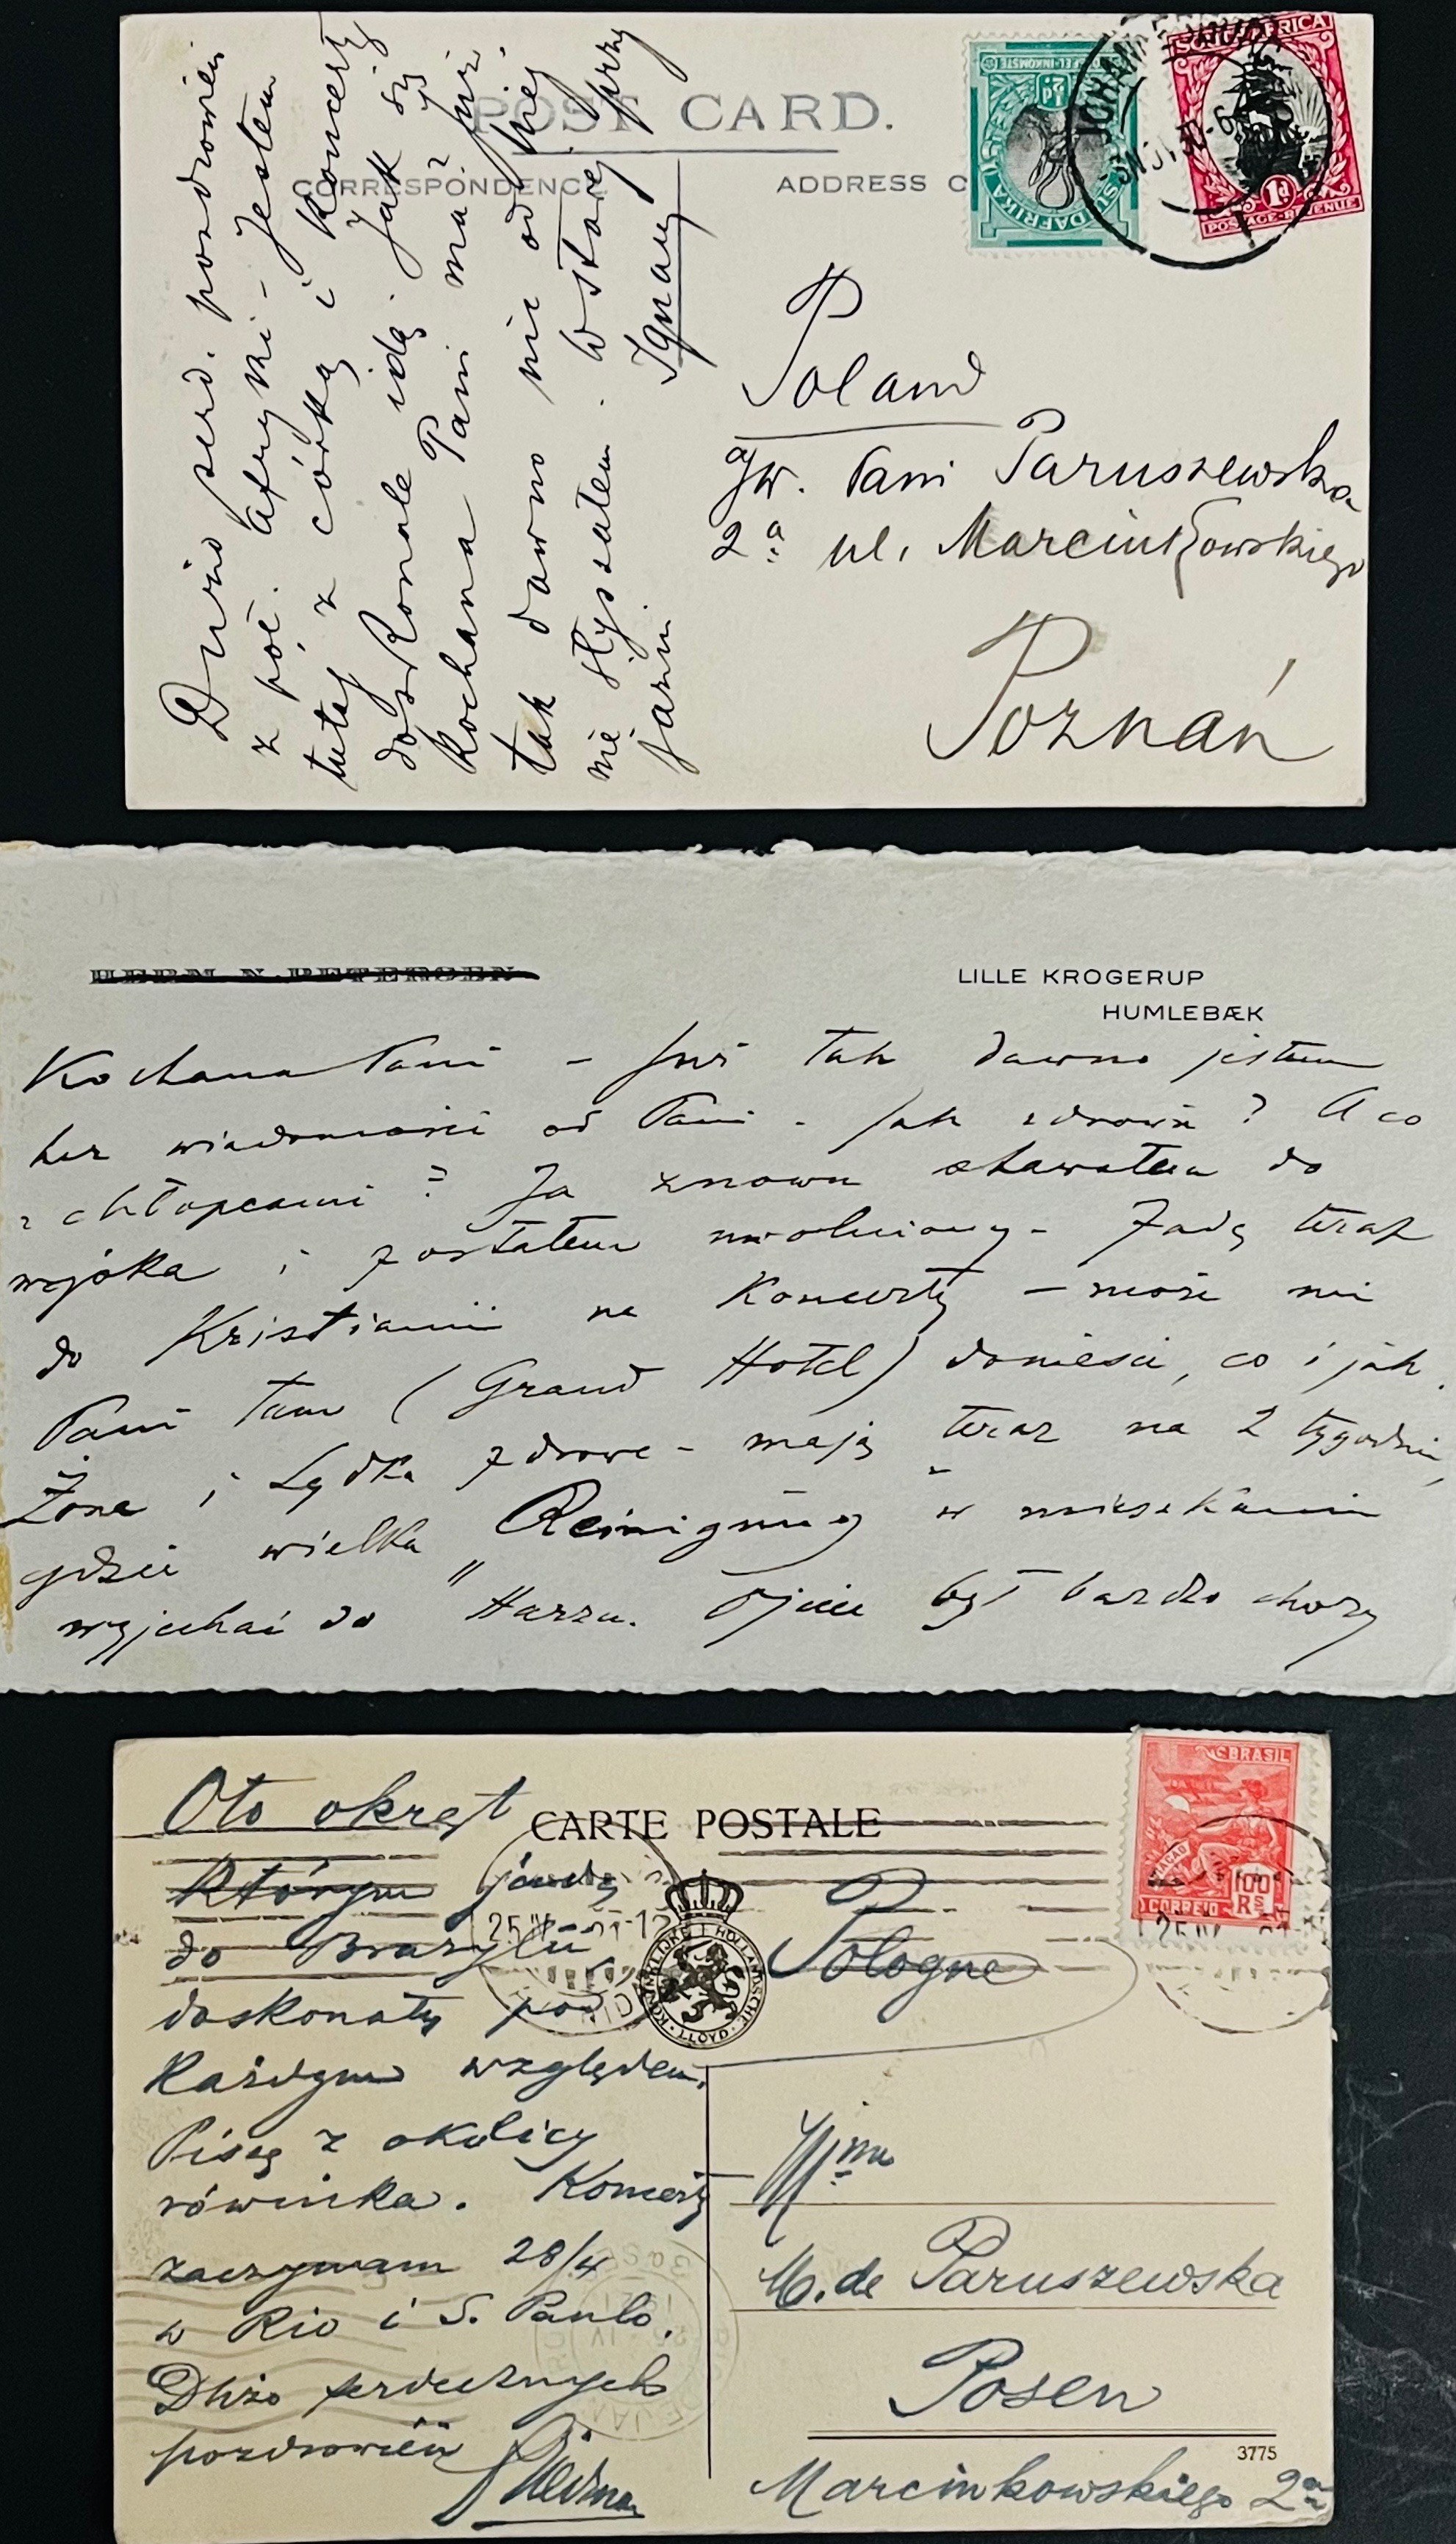 POST CARD.
CORRESPONDENCE
ADDRESS
SUIDAFRIKA
½d
JOHANNESBURG
SOUTH AFRICA
1d
POSTAGE-REVENUE
Dużo serd. pozdrowień
z płd. Afryki - Jestem
tutaj z córką i koncerty
doskonale idą. Jak się
Kochana Pani ma? Już
tak dawno nic od Niej
nie słyszałem. W starej przy
jaźni
Ignacy
Poland
Pani Paruszewska
2a ul. Marcinkowskiego
Poznań
LILLE KROGERUP
HUMLEBÆK
Kochana Pani - Już tak dawno jestem
bez wiadomości od Pani - Jak zdrowie? A co
z chłopcami? Ja znowu stawałem do
wojska i zostałem uwolniony - Jadę teraz
do Kristianii na Koncerty - może mi
Pani tam (Grand Hotel) donieść, co i jak.
Żona i Lydka zdrowe - mają teraz na 2 tygodnie,
gdzie wielka "Reinigung" w mieszkaniu
wyjechać do Harzu. Ojciec był bardzo chory
CARTE POSTALE
BRASIL
100 Rs
CORREIO
KONINKLIJKE HOLLANDSCHE LLOYD
Oto okręt
którym jadę
do Brazylii
doskonały pod
każdym względem.
Piszę z okolicy
równika. Koncerty
zaczynam 28/4
w Rio i S. Paulo.
Dużo serdecznych
pozdrowień
Pologne
Mme
M. de Paruszewska
Posen
3775
Marcinkowskiego 2a